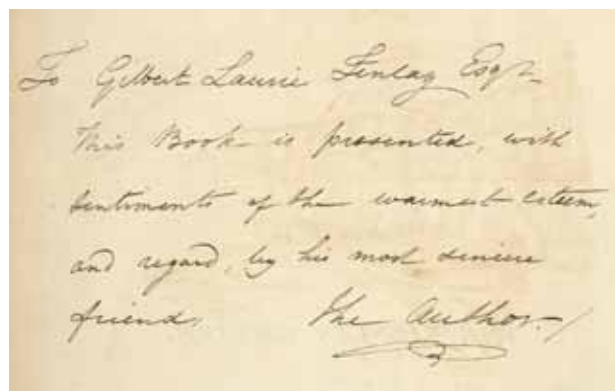 To Gilbert Laurie Finlay Esqr
This Book is presented, with
sentiments of the warmest esteem,
and regard, by his most sincere
friend, The Author.